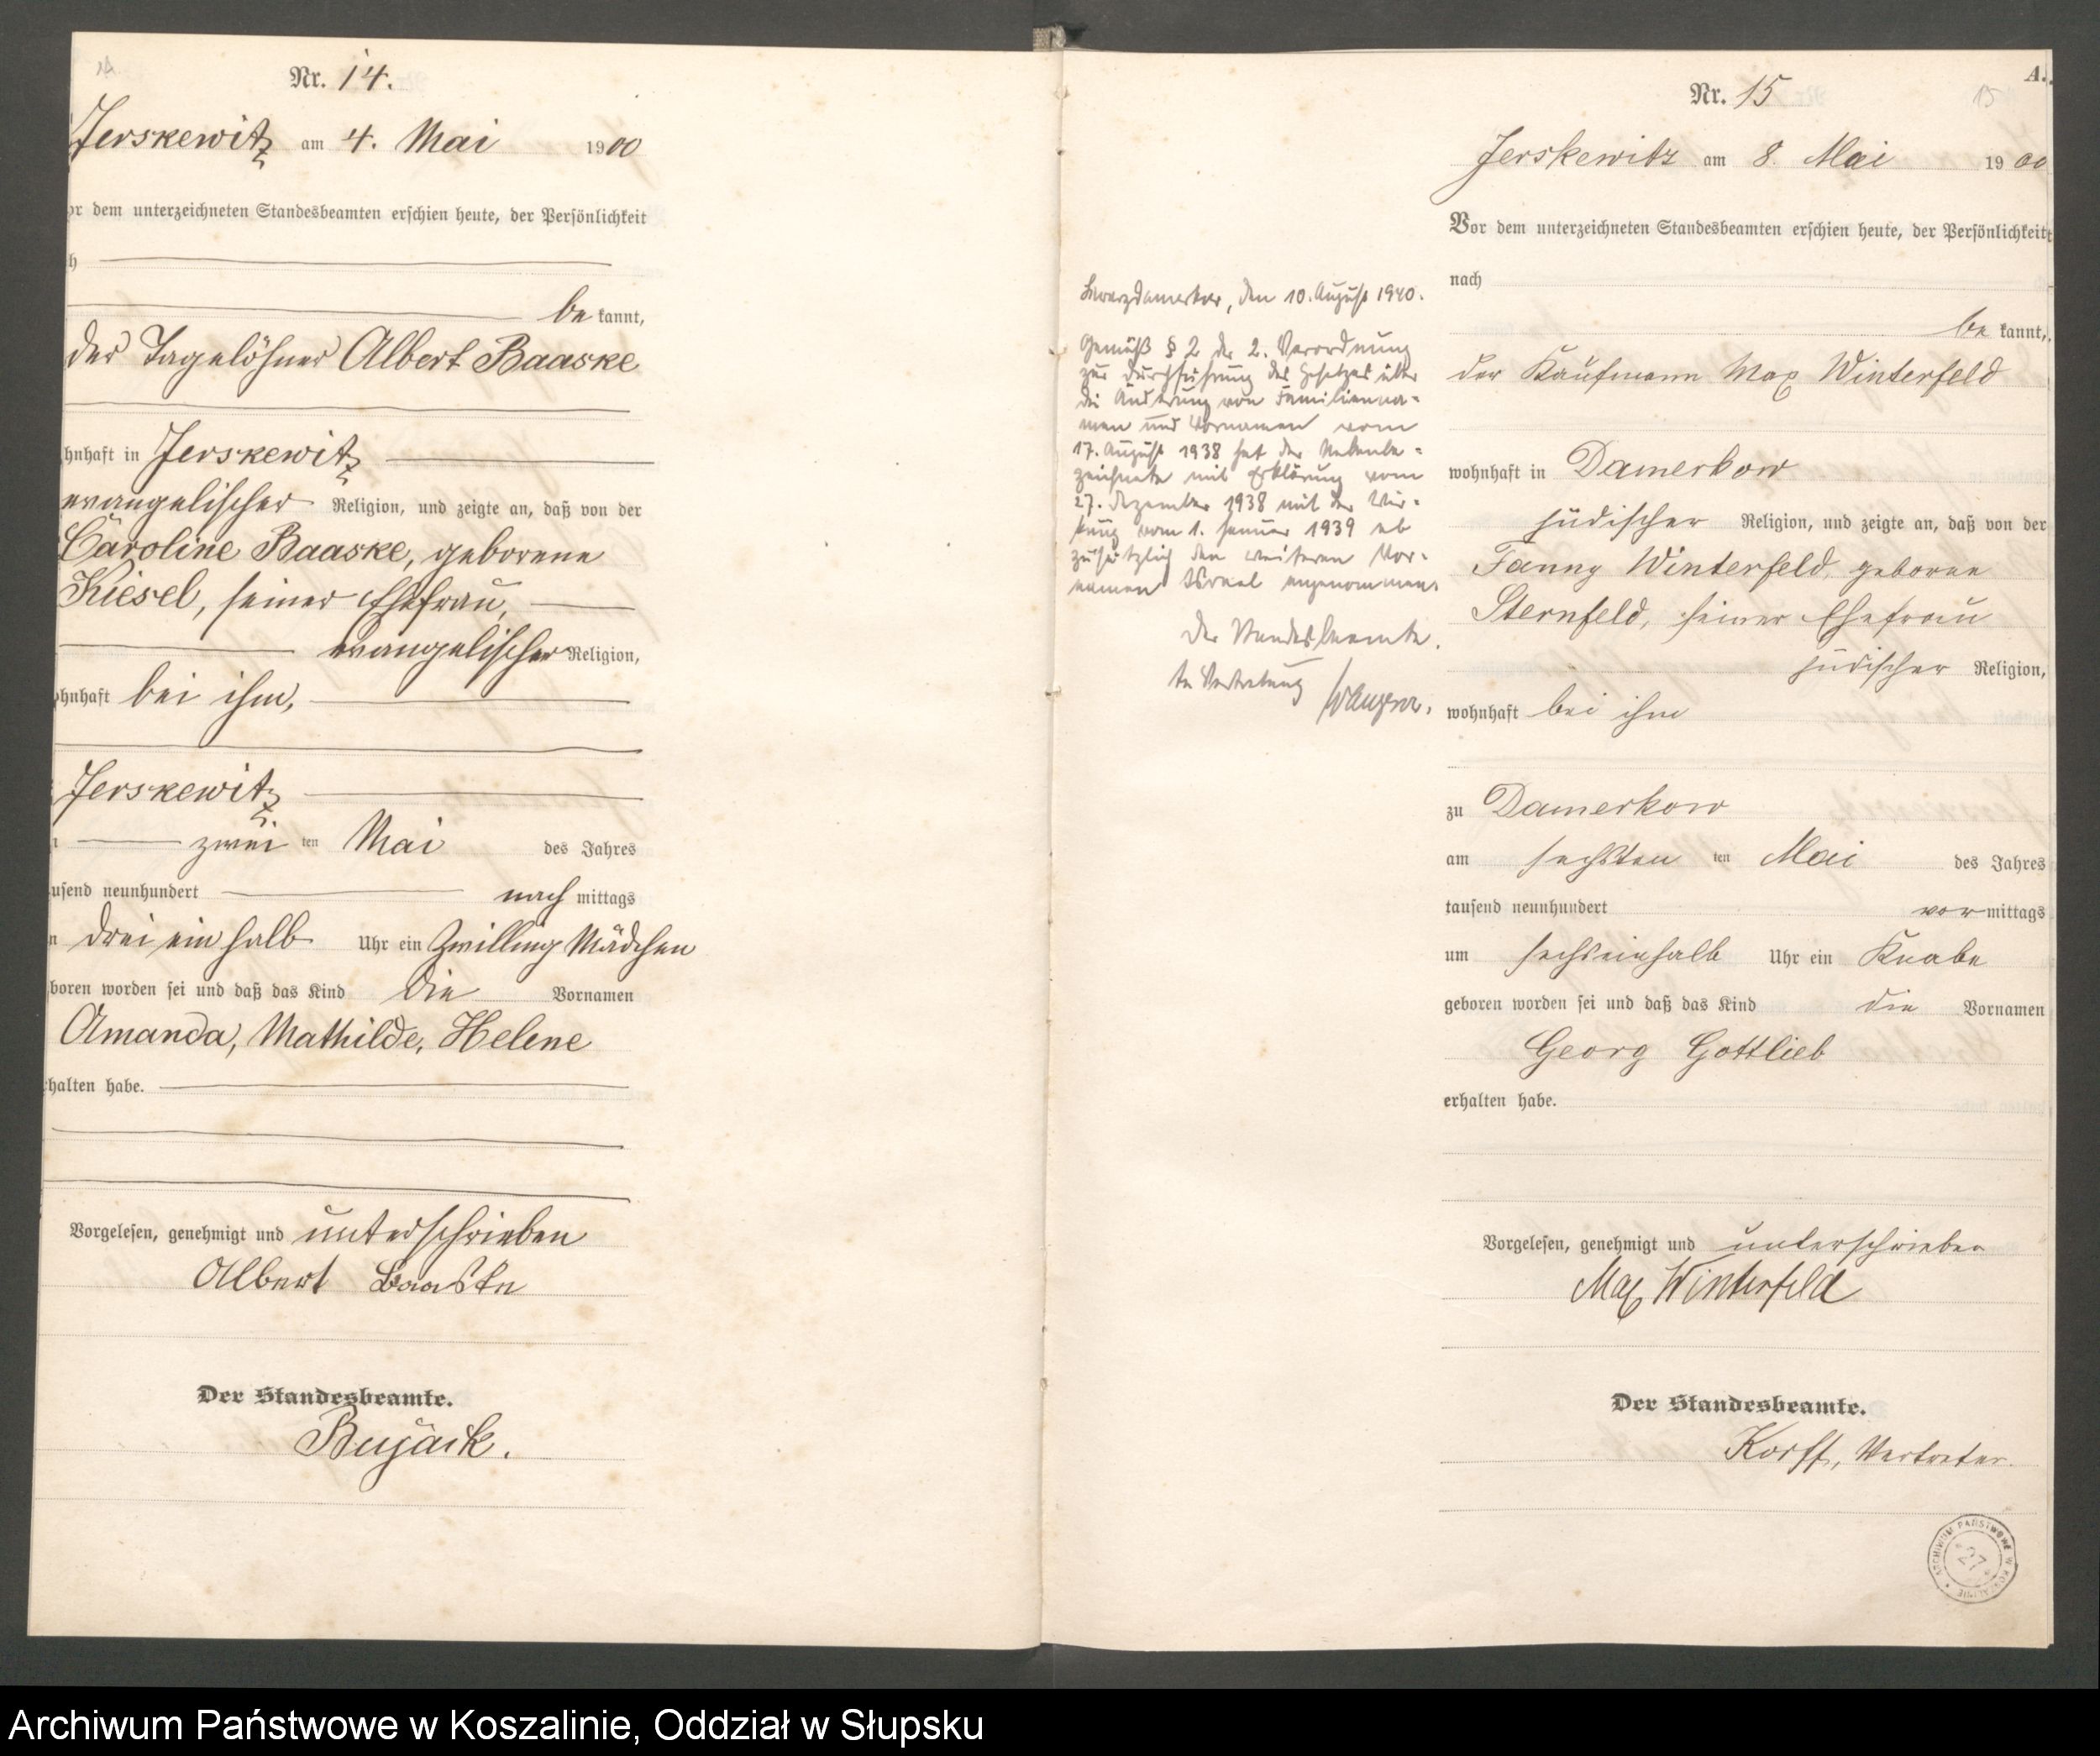 14
Nr. 14.
Jerskewitz am 4. Mai 1900
or dem unterzeichneten Standesbeamten erschien heute, der Persönlichkeit
h
be kannt,
der Tagelöhner Albert Baaske
hnhaft in Jerskewitz
evangelischer Religion, und zeigte an, daß von der
Caroline Baaske, geborene
Kiesel, seiner Ehefrau,
evangelischer Religion,
ohnhaft bei ihm,
Jerskewitz
zwei ten Mai des Jahres
usend neunhundert nach mittags
drei ein halb Uhr ein Zwilling Mädchen
boren worden sei und daß das Kind die Vornamen
Amanda, Mathilde, Helene
halten habe.
Vorgelesen, genehmigt und unterschrieben
Albert Baaske
Der Standesbeamte.
Bujack.
A.
Nr. 15
15
Jerskewitz am 8. Mai 1900
Vor dem unterzeichneten Standesbeamten erschien heute, der Persönlichkeit
nach
be kannt,
der Kaufmann Max Winterfeld
wohnhaft in Damerkow
jüdischer Religion, und zeigte an, daß von der
Fanny Winterfeld, geborne
Sternfeld, seiner Ehefrau
jüdischer Religion,
wohnhaft bei ihm
zu Damerkow
am sechsten ten Mai des Jahres
tausend neunhundert vor mittags
um sechseinhalb Uhr ein Knabe
geboren worden sei und daß das Kind die Vornamen
Georg Gottlieb
erhalten habe.
Vorgelesen, genehmigt und unterschrieben
Max Winterfeld
Der Standesbeamte.
Korff, Vertreter.
Schwarzdamerkow, den 10. August 1940.
Gemäß § 2 der 2. Verordnung
zur Durchführung des Gesetzes über
die Änderung von Familienna-
men und Vornamen vom
17. August 1938 hat der Nebenbe-
zeichnete mit Erklärung vom
27. Dezember 1938 mit der Wir-
kung vom 1. Januar 1939 ab
zusätzlich den weiteren Vor-
namen Israel angenommen.
Der Standesbeamte.
In Vertretung
ARCHIWUM PAŃSTWOWE W KOSZALINIE
27
Archiwum Państwowe w Koszalinie, Oddział w Słupsku